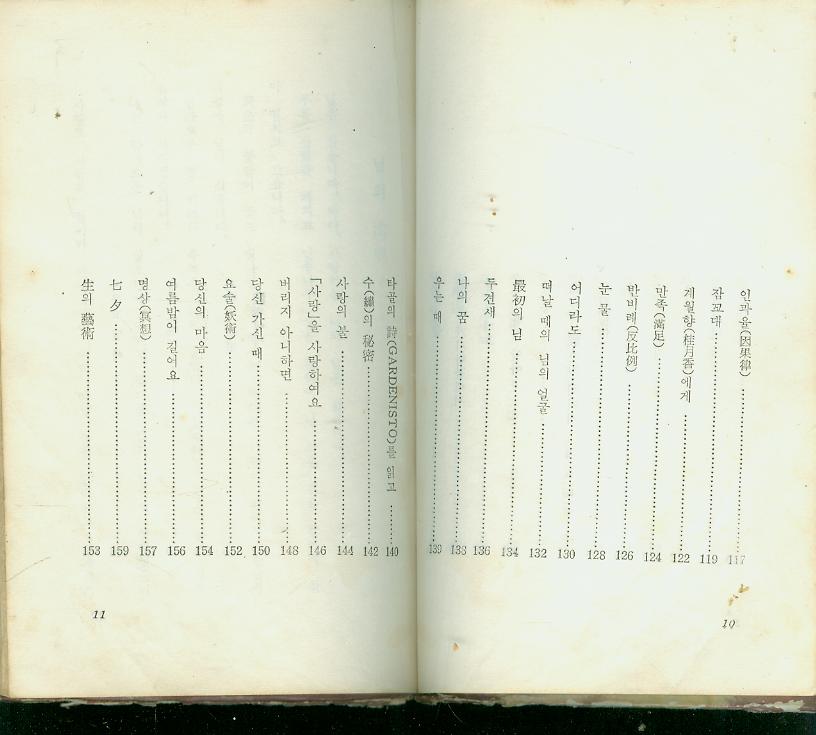 인과율(因果律) 117
잠꼬대 119
계월향(桂月香)에게 122
만족(滿足) 124
반비례(反比例) 126
눈물 128
어디라도 130
떠날 때의 님의 얼굴 132
最初의 님 134
두견새 136
나의 꿈 138
우는 때 139
10
타골의 詩(GARDENISTO)를 읽고 140
수(繡)의 秘密 142
사랑의 불 144
「사랑」을 사랑하여요 146
버리지 아니하면 148
당신 가신 때 150
요술(妖術) 152
당신의 마음 154
여름밤이 길어요 156
명상(冥想) 157
七夕 159
生의 藝術 153
11